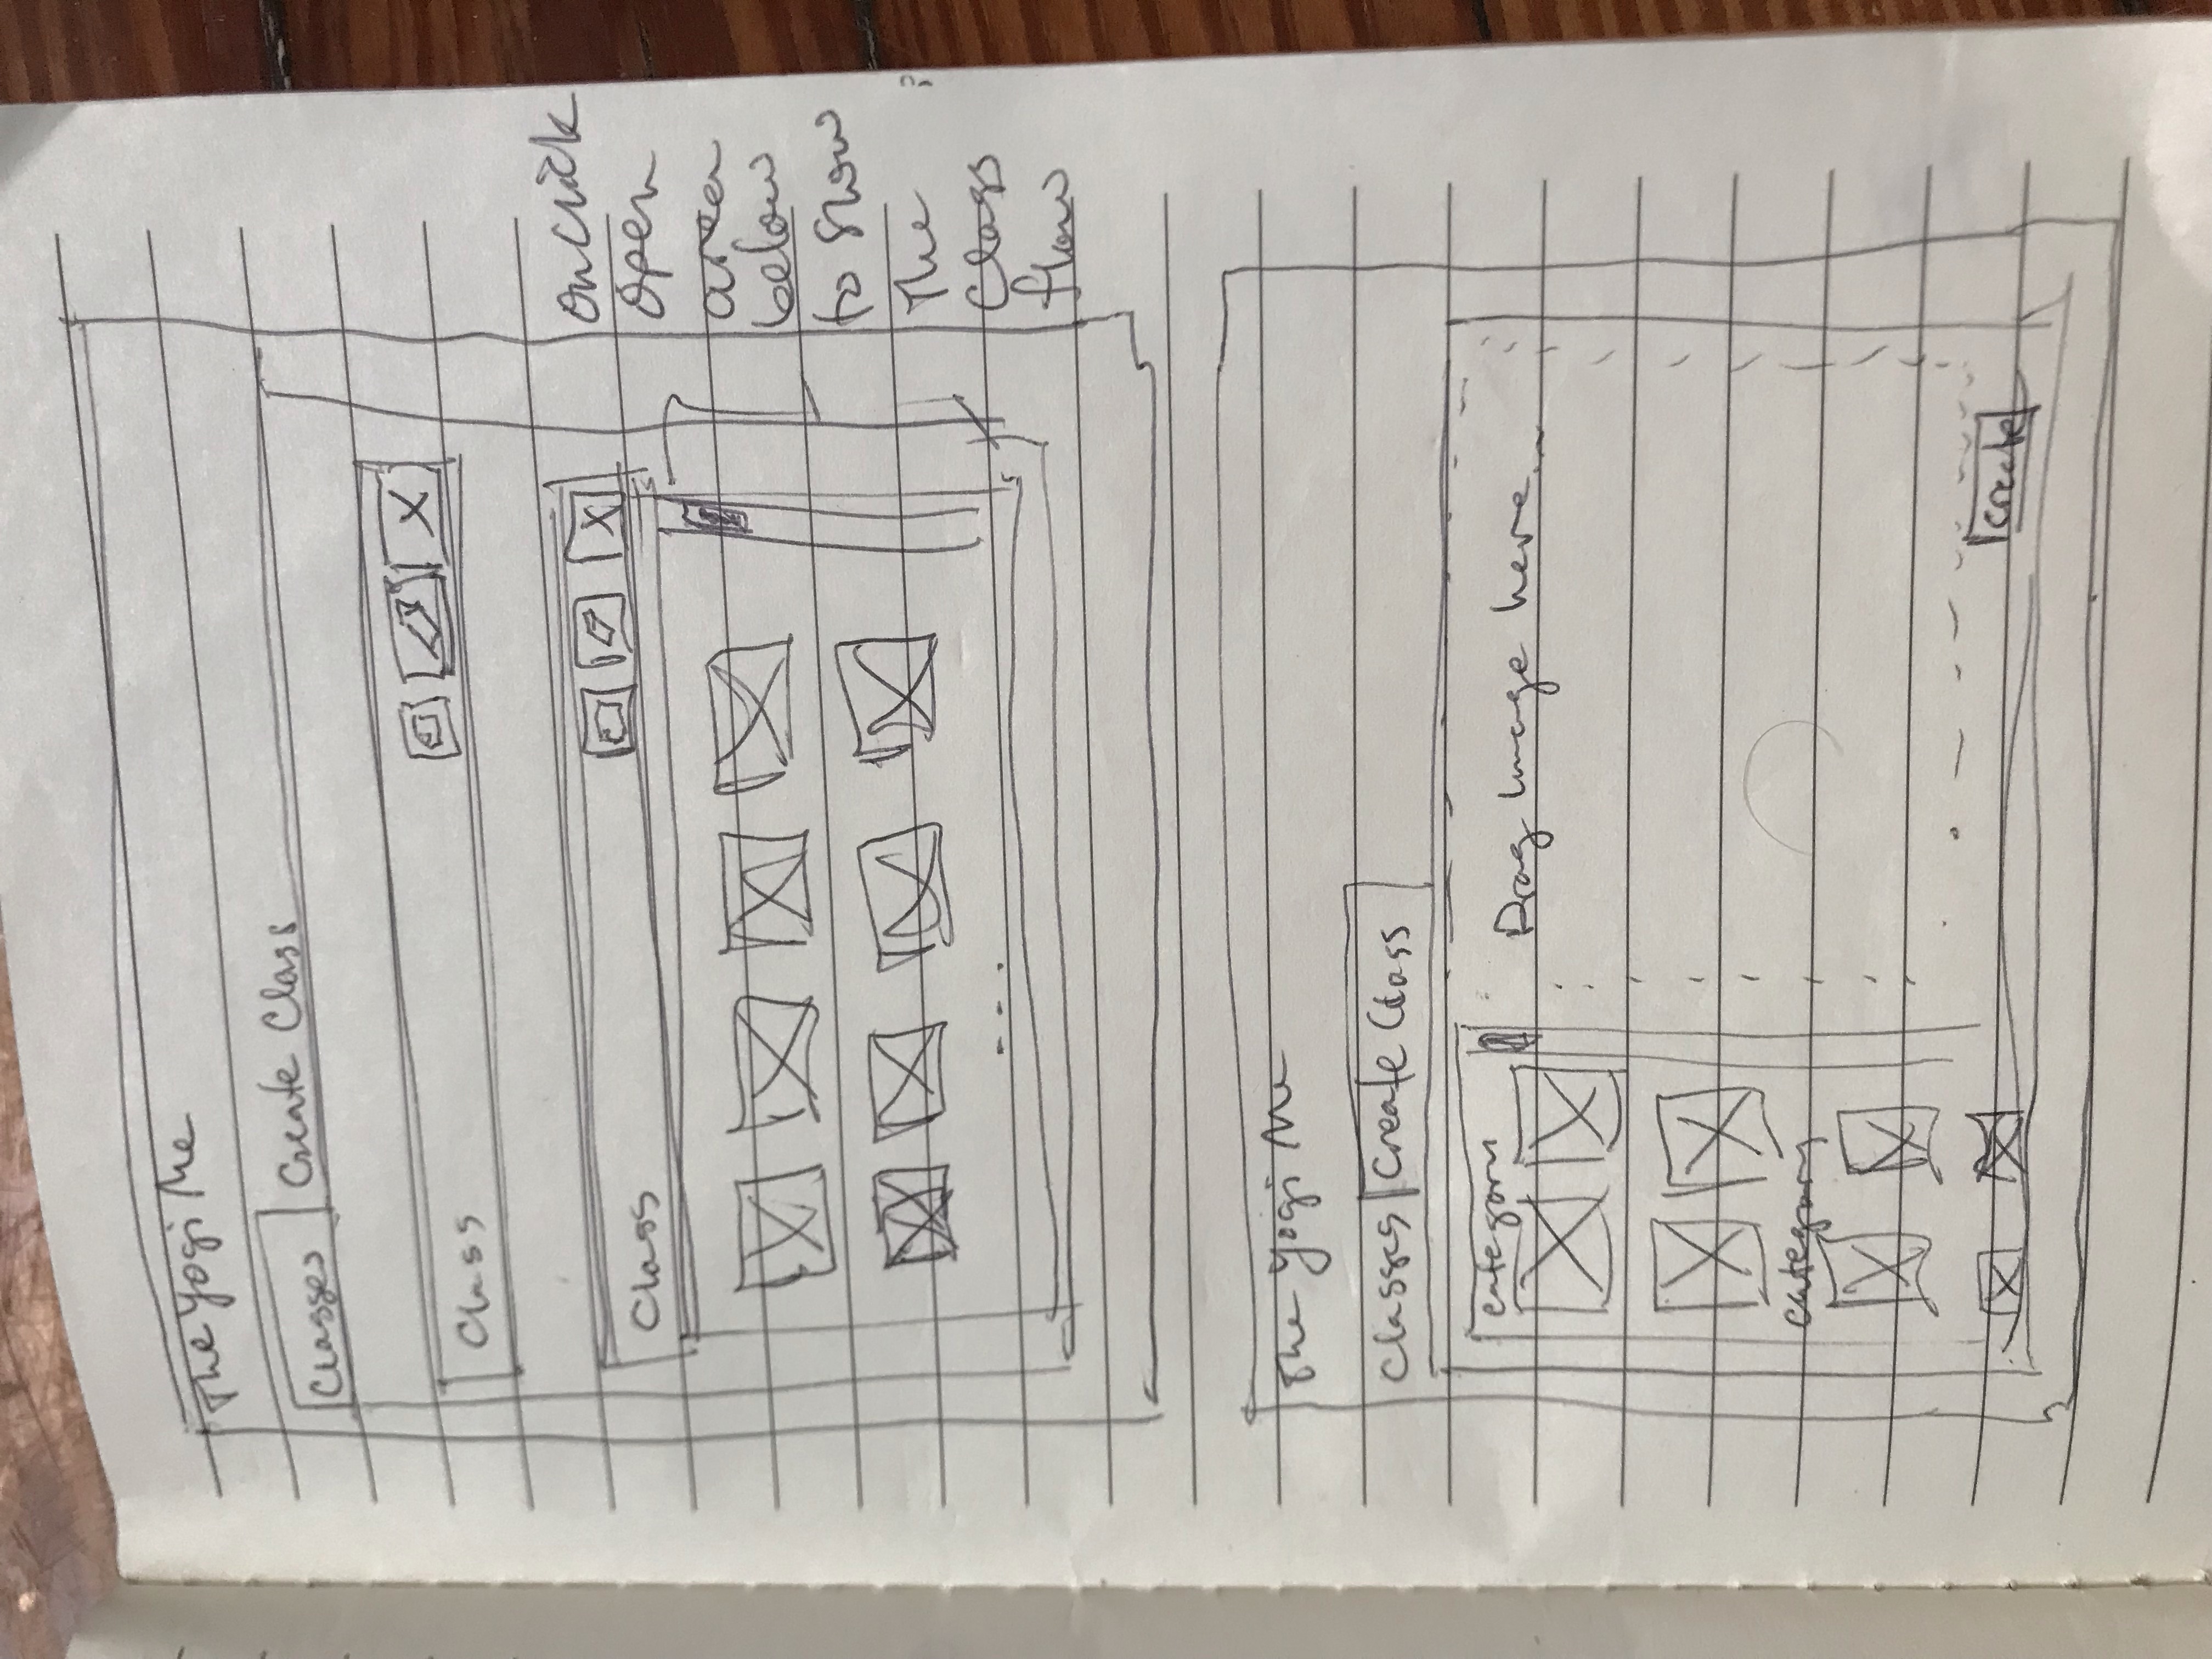 The Yogi Me
Classes
Create Class
Class
X
Class
X
...
onclick
open
area
below
to show
The
class
flow
?
The Yogi Me
Classes
Create Class
category
Drag Image here...
category
Create